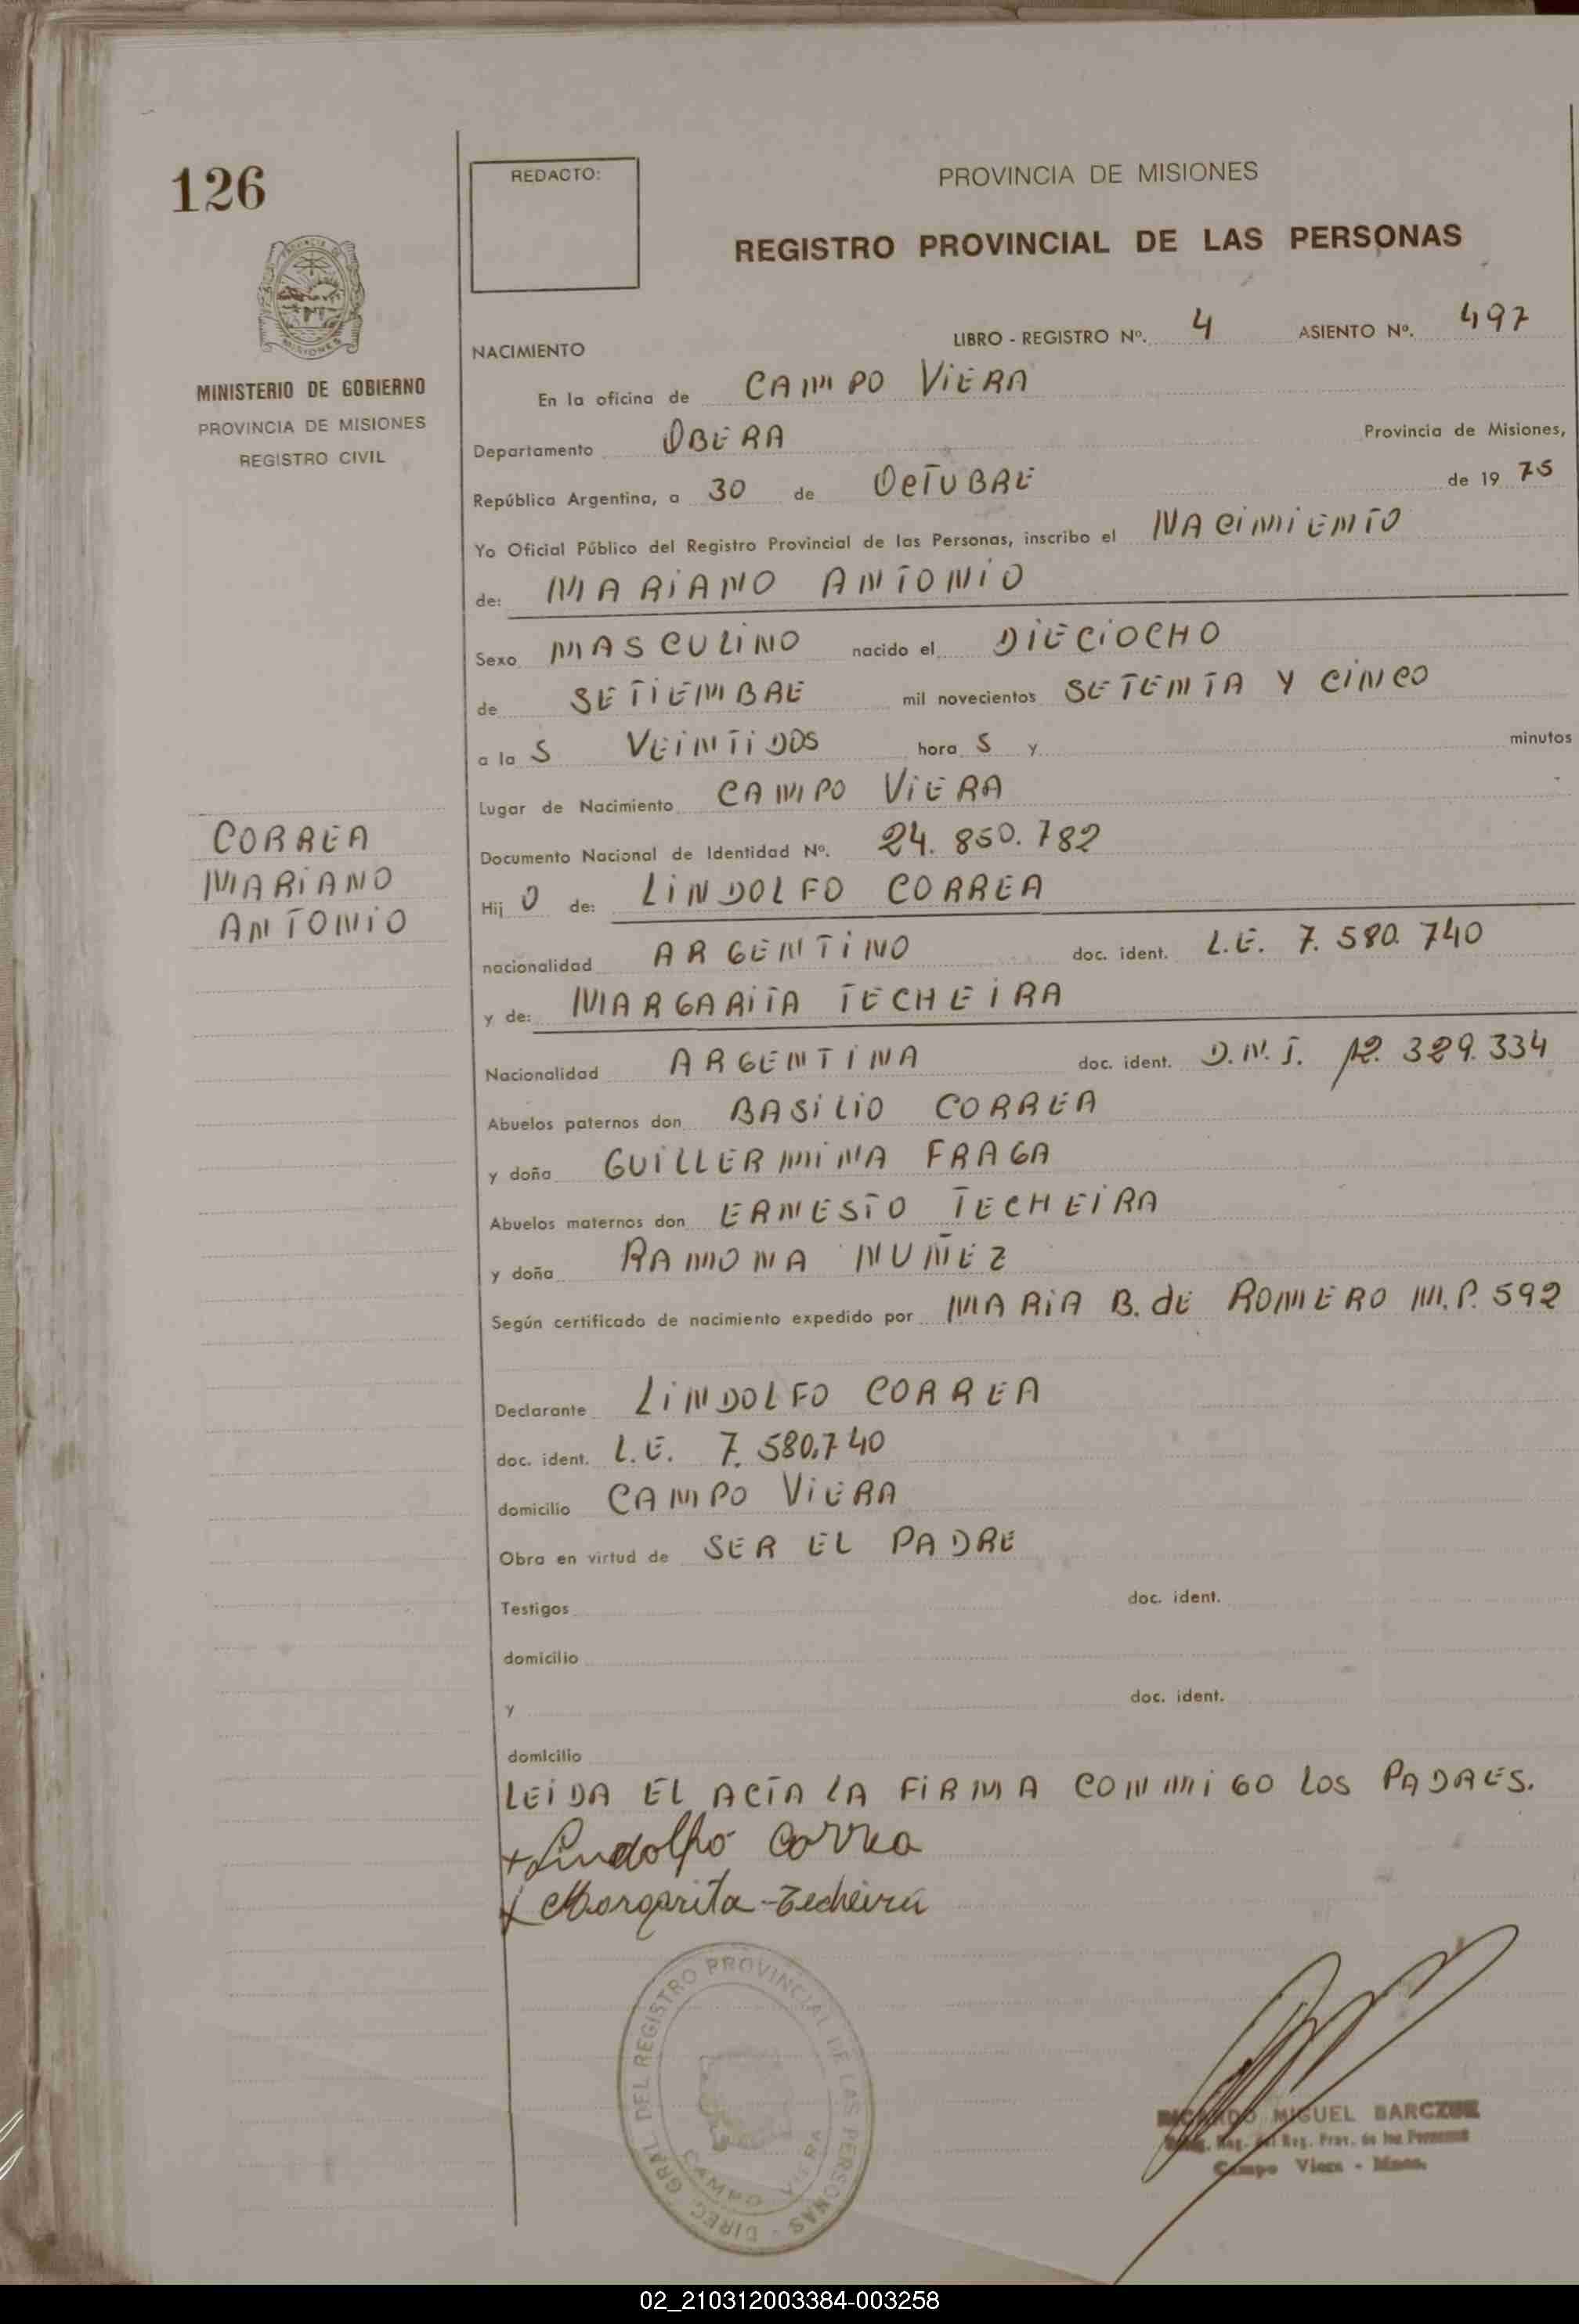 126
REDACTO:
PROVINCIA DE MISIONES
REGISTRO PROVINCIAL DE LAS PERSONAS
MISIONES
MINISTERIO DE GOBIERNO
PROVINCIA DE MISIONES
REGISTRO CIVIL
LIBRO - REGISTRO Nº. 4 ASIENTO Nº. 497
NACIMIENTO
En la oficina de CAMPO VIERA
Departamento OBERA Provincia de Misiones,
República Argentina, a 30 de OCTUBRE de 19 75
Yo Oficial Público del Registro Provincial de las Personas, inscribo el NACIMIENTO
de: MARIANO ANTONIO
Sexo MASCULINO nacido el DIECIOCHO
de SETIEMBRE mil novecientos SETENTA Y CINCO
a la S VEINTIDOS hora S y minutos
Lugar de Nacimiento CAMPO VIERA
CORREA
MARIANO
ANTONIO
Documento Nacional de Identidad Nº. 24.850.782
Hij O de: LINDOLFO CORREA
nacionalidad ARGENTINO doc. ident. L.E. 7.580.740
y de: MARGARITA TECHEIRA
Nacionalidad ARGENTINA doc. ident. D.N.I. 12.329.334
Abuelos paternos don BASILIO CORREA
y doña GUILLERMINA FRAGA
Abuelos maternos don ERNESTO TECHEIRA
y doña RAMONA NUÑEZ
Según certificado de nacimiento expedido por MARIA B. dE ROMERO M.P. 592
Declarante LINDOLFO CORREA
doc. ident. L.E. 7.580.740
domicilio CAMPO VIERA
Obra en virtud de SER EL PADRE
Testigos doc. ident.
domicilio
y doc. ident.
domicilio
LEIDA EL ACTA LA FIRMA CONMIGO LOS PADRES.
+ Lindolfo Correa
x Margarita - Techeira
DIREC. GRAL. DEL REGISTRO PROVINCIAL DE LAS PERSONAS
CAMPO VIERA
RICARDO MIGUEL BARCZUK
Reg. Prov. de las Personas
Campo Viera - Mnes.
02_210312003384-003258